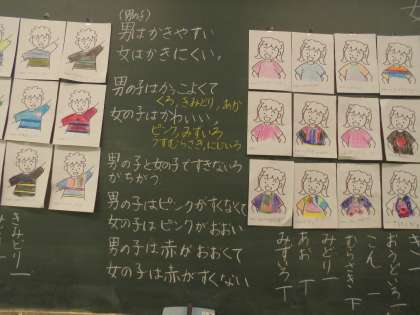 (男の子)
男はかきやすい
女はかきにくい。
男の子はかっこよくて
くろ、きみどり、あか
女の子はかわいい,
ピンク、みずいろ
うすむらさき、にじいろ
男の子と女の子ですきないろ
がちがう
男の子はピンクがすくなくて
女の子はピンクがおおい
男の子は赤がおおくて
女の子は赤がすくない
きみどり一
おうどいろ一
こん一
むらさき下
みどり一
あお丁
みずいろ丁